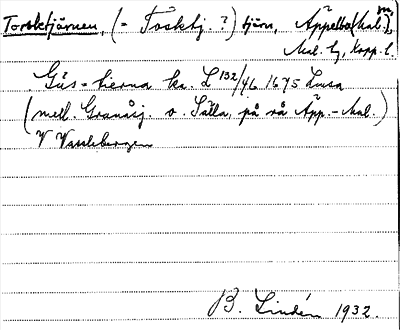 Torsktjärnen, (= Fösktj. ?) tjärn, Äppelbo (Mal.) sn,
Mal. tg, Kopp. l.
Gås-tierna ka. L 132/46 1675 Lusa
(mell. Granåsj. o. Sälla, på rå Äpp.-Mal.)
V Vasslebergen
B. Lindén 1932.